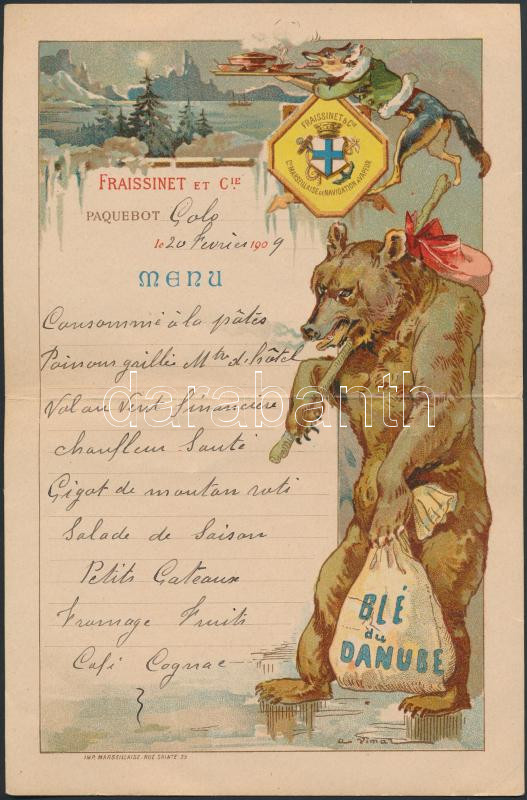 FRAISSINET & Cie
Cie MARSEILLAISE DE NAVIGATION A VAPEUR
FRAISSINET ET CIE
PAQUEBOT Golo
le 20 Fevrier 1909
MENU
Consommé à la pâtes
Poissons grillés Mtre d'hôtel
Vol au Vent financière
darabanth
Choufleur Sauté
Gigot de mouton roti
Salade de Saison
Petits Gateaux
Fromage Fruits
Café Cognac
BLÉ
du
DANUBE
a Vimar
IMP. MARSEILLAISE, RUE SAINTE 39